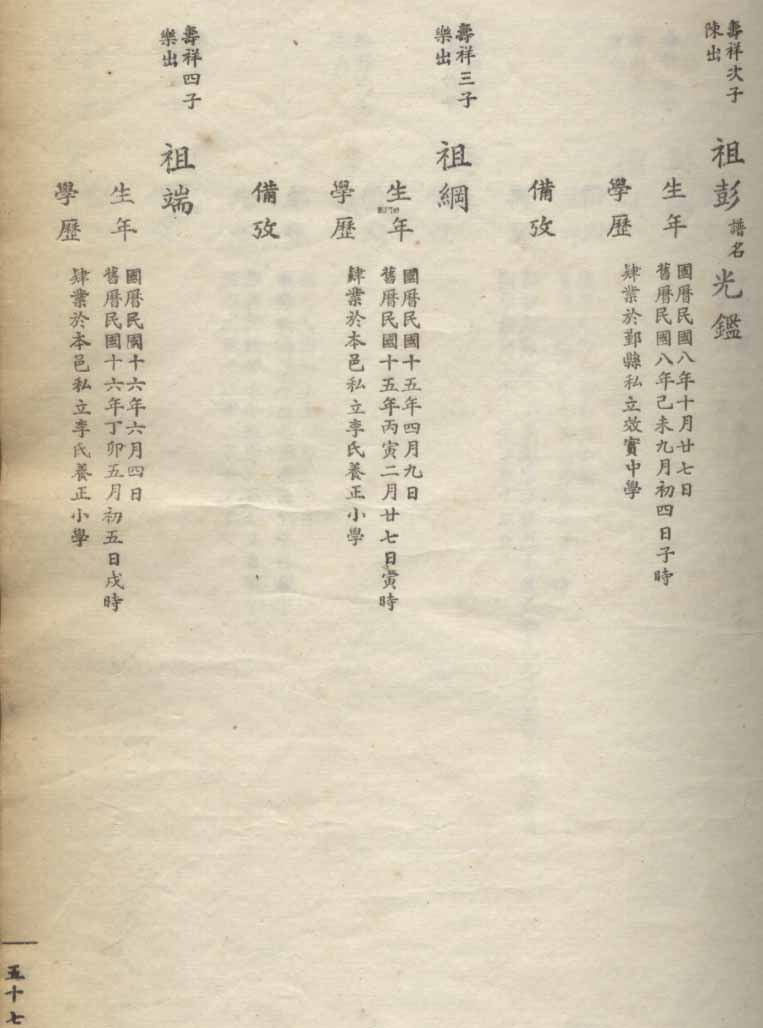 壽祥次子
陳出
祖彭 譜名 光鑑
生年
國曆民國八年十月廿七日
舊曆民國八年己未九月初四日子時
學歷
肄業於鄞縣私立效實中學
備攷
壽祥三子
樂出
祖綱
生年
國曆民國十五年四月九日
舊曆民國十五年丙寅二月廿七日寅時
學歷
肄業於本邑私立李氏養正小學
備攷
壽祥四子
樂出
祖端
生年
國曆民國十六年六月四日
舊曆民國十六年丁卯五月初五日戌時
學歷
肄業於本邑私立李氏養正小學
五十七